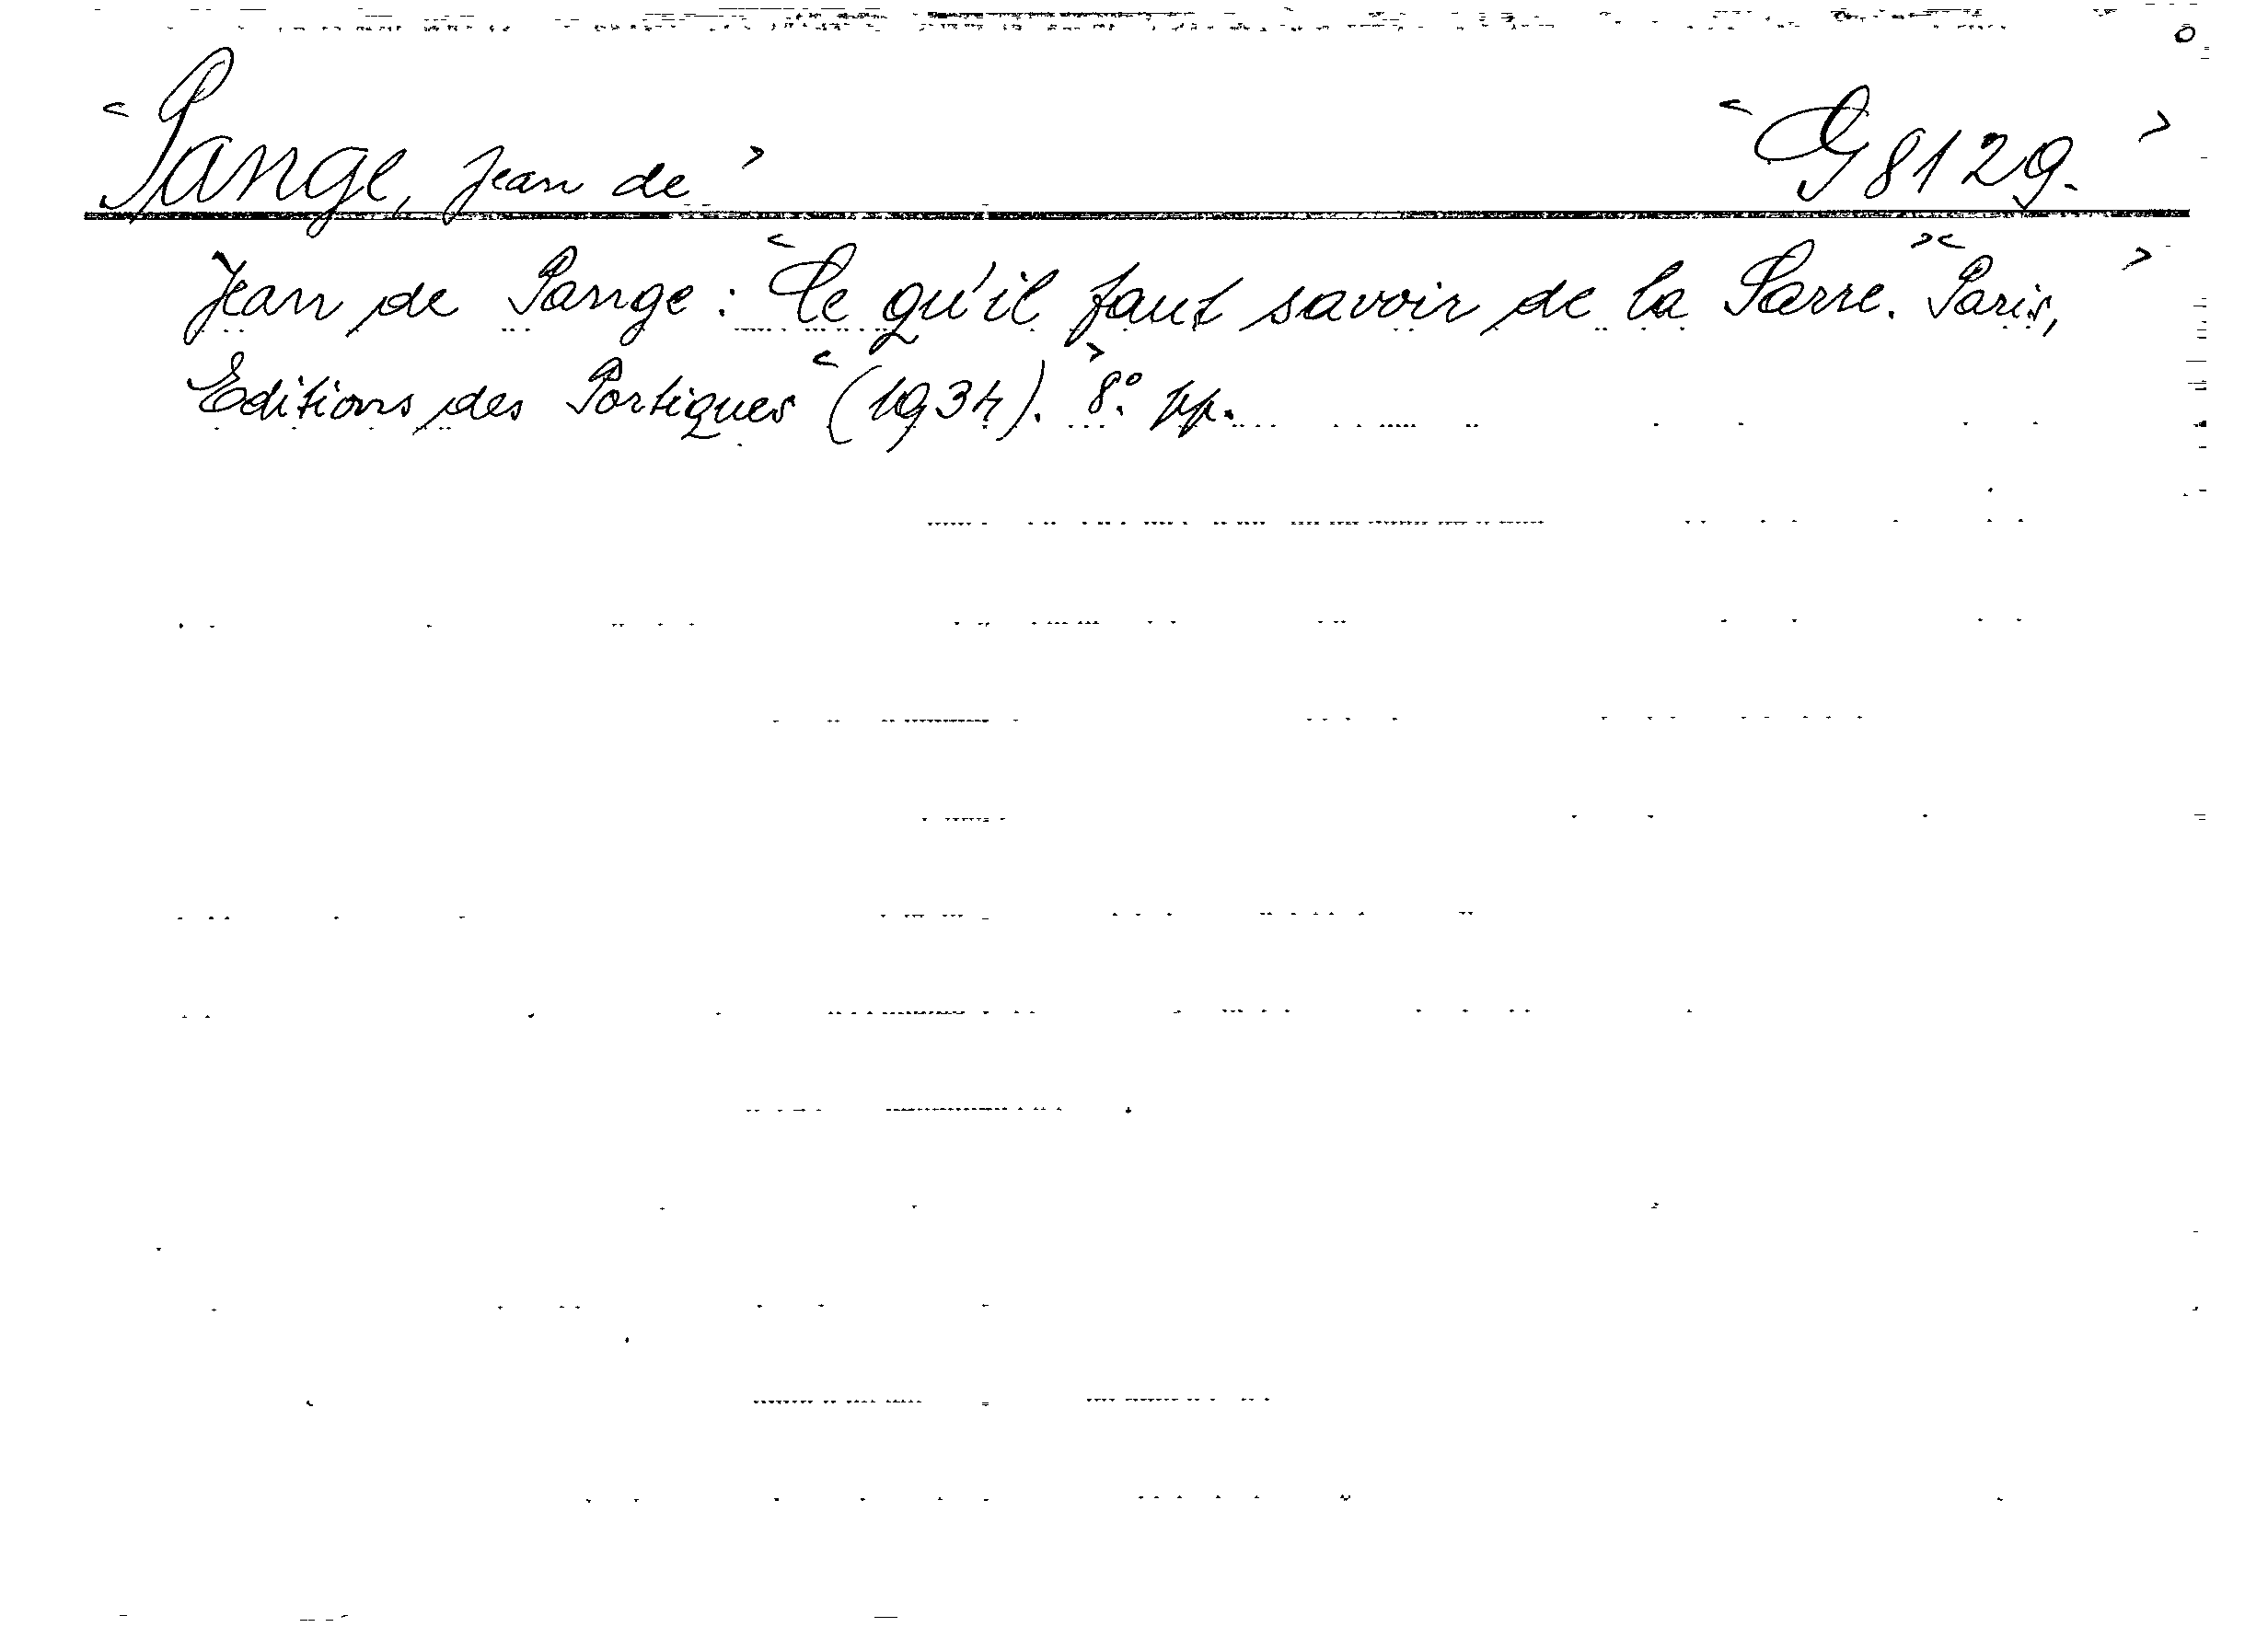 <Pange, Jean de> <G 8129.>
Jean de Pange: <Ce qu'il faut savoir de la Sarre.> <Paris,>
Editions des Portiques <(1934).> 8°. pp.